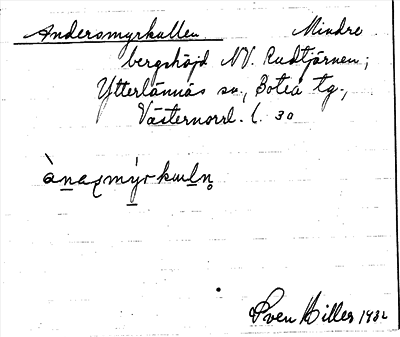 Andersmyrkullen Mindre
bergshöjd NV. Rudtjärnen;
Ytterlännäs sn., Boteå tg.,
Västernorrl. l. 30
Sven Hiller 1932